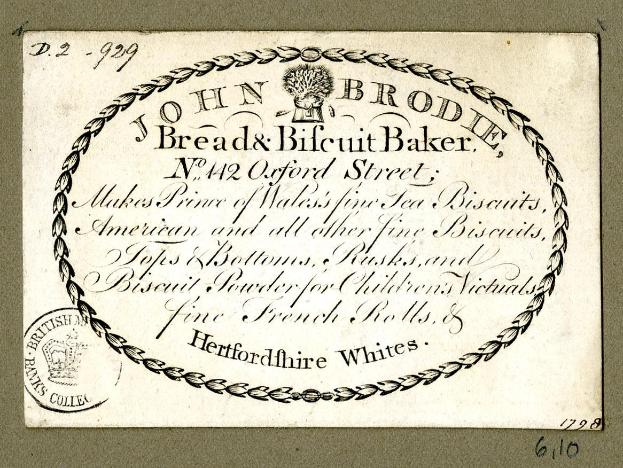 D.2 - 929
JOHN BRODIE,
Bread & Biſcuit Baker.
No. 442 Oxford Street;
Makes Prince of Wales's fine Tea Biscuits,
American and all other fine Biscuits,
Tops & Bottoms, Rusks, and
Biscuit Powder for Children's Victuals,
fine French Rolls, &
Hertfordſhire Whites.
BRITISH
BANKS COLLEC
1798
6,10